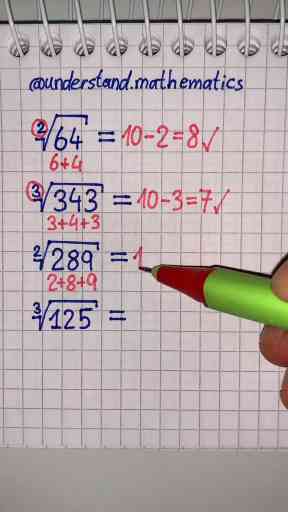 @understand.mathematics
²√64 = 10-2=8✓
6+4
³√343 = 10-3=7✓
3+4+3
²√289 = 1
2+8+9
³√125 =